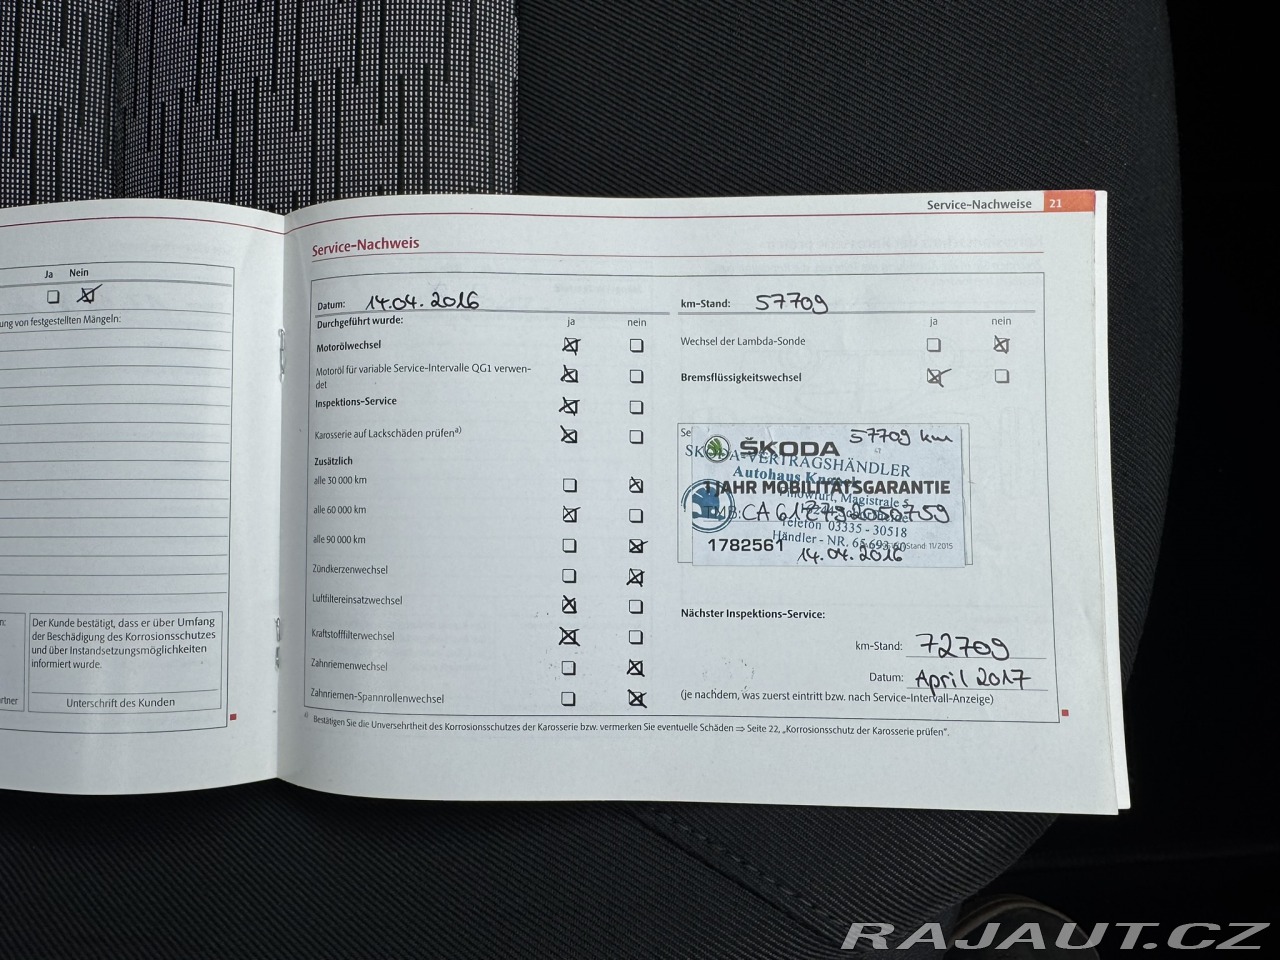 Service-Nachweise 21
Ja Nein
ung von festgestellten Mängeln:
Der Kunde bestätigt, dass er über Umfang
der Beschädigung des Korrosionsschutzes
und über Instandsetzungsmöglichkeiten
informiert wurde.
Unterschrift des Kunden
Service-Nachweis
Datum: 14.04.2016
Durchgeführt wurde: ja nein
Motorölwechsel
Motoröl für variable Service-Intervalle QG1 verwen-
det
Inspektions-Service
Karosserie auf Lackschäden prüfen a)
Zusätzlich
alle 30 000 km
alle 60 000 km
alle 90 000 km
Zündkerzenwechsel
Luftfiltereinsatzwechsel
Kraftstofffilterwechsel
Zahnriemenwechsel
Zahnriemen-Spannrollenwechsel
km-Stand: 57709
ja nein
Wechsel der Lambda-Sonde
Bremsflüssigkeitswechsel
Se
ŠKODA 57709 km
SKODA-VERTRAGSHÄNDLER
Autohaus
1 JAHR MOBILITÄTSGARANTIE
Magistrale 5
Telefon 03335 - 30518
Händler - NR.
1782561 Stand: 11/2015
14.04.2016
Nächster Inspektions-Service:
km-Stand: 72709
Datum: April 2017
(je nachdem, was zuerst eintritt bzw. nach Service-Intervall-Anzeige)
a) Bestätigen Sie die Unversehrtheit des Korrosionsschutzes der Karosserie bzw. vermerken Sie eventuelle Schäden ⇒ Seite 22, „Korrosionsschutz der Karosserie prüfen“.
RAJAUT.CZ